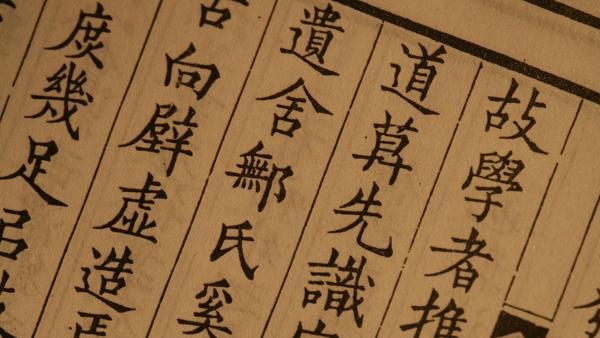 故學者推
道莫先識
遺舍鄦氏奚
向壁虛造
庶幾足㠯